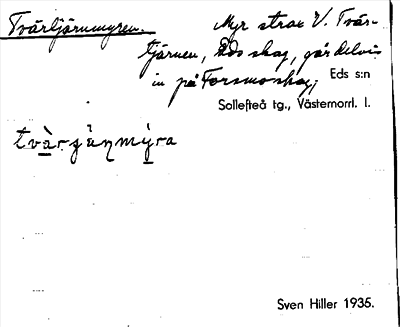 Tvärtjärnmyren. Myr strax V. Tvär-
tjärnen, Eds skog, går delvis
in på Forsmoskog, Eds s:n
Sollefteå tg., Västernorrl. l.
tvä̀rşäɳmy̆ra
Sven Hiller 1935.